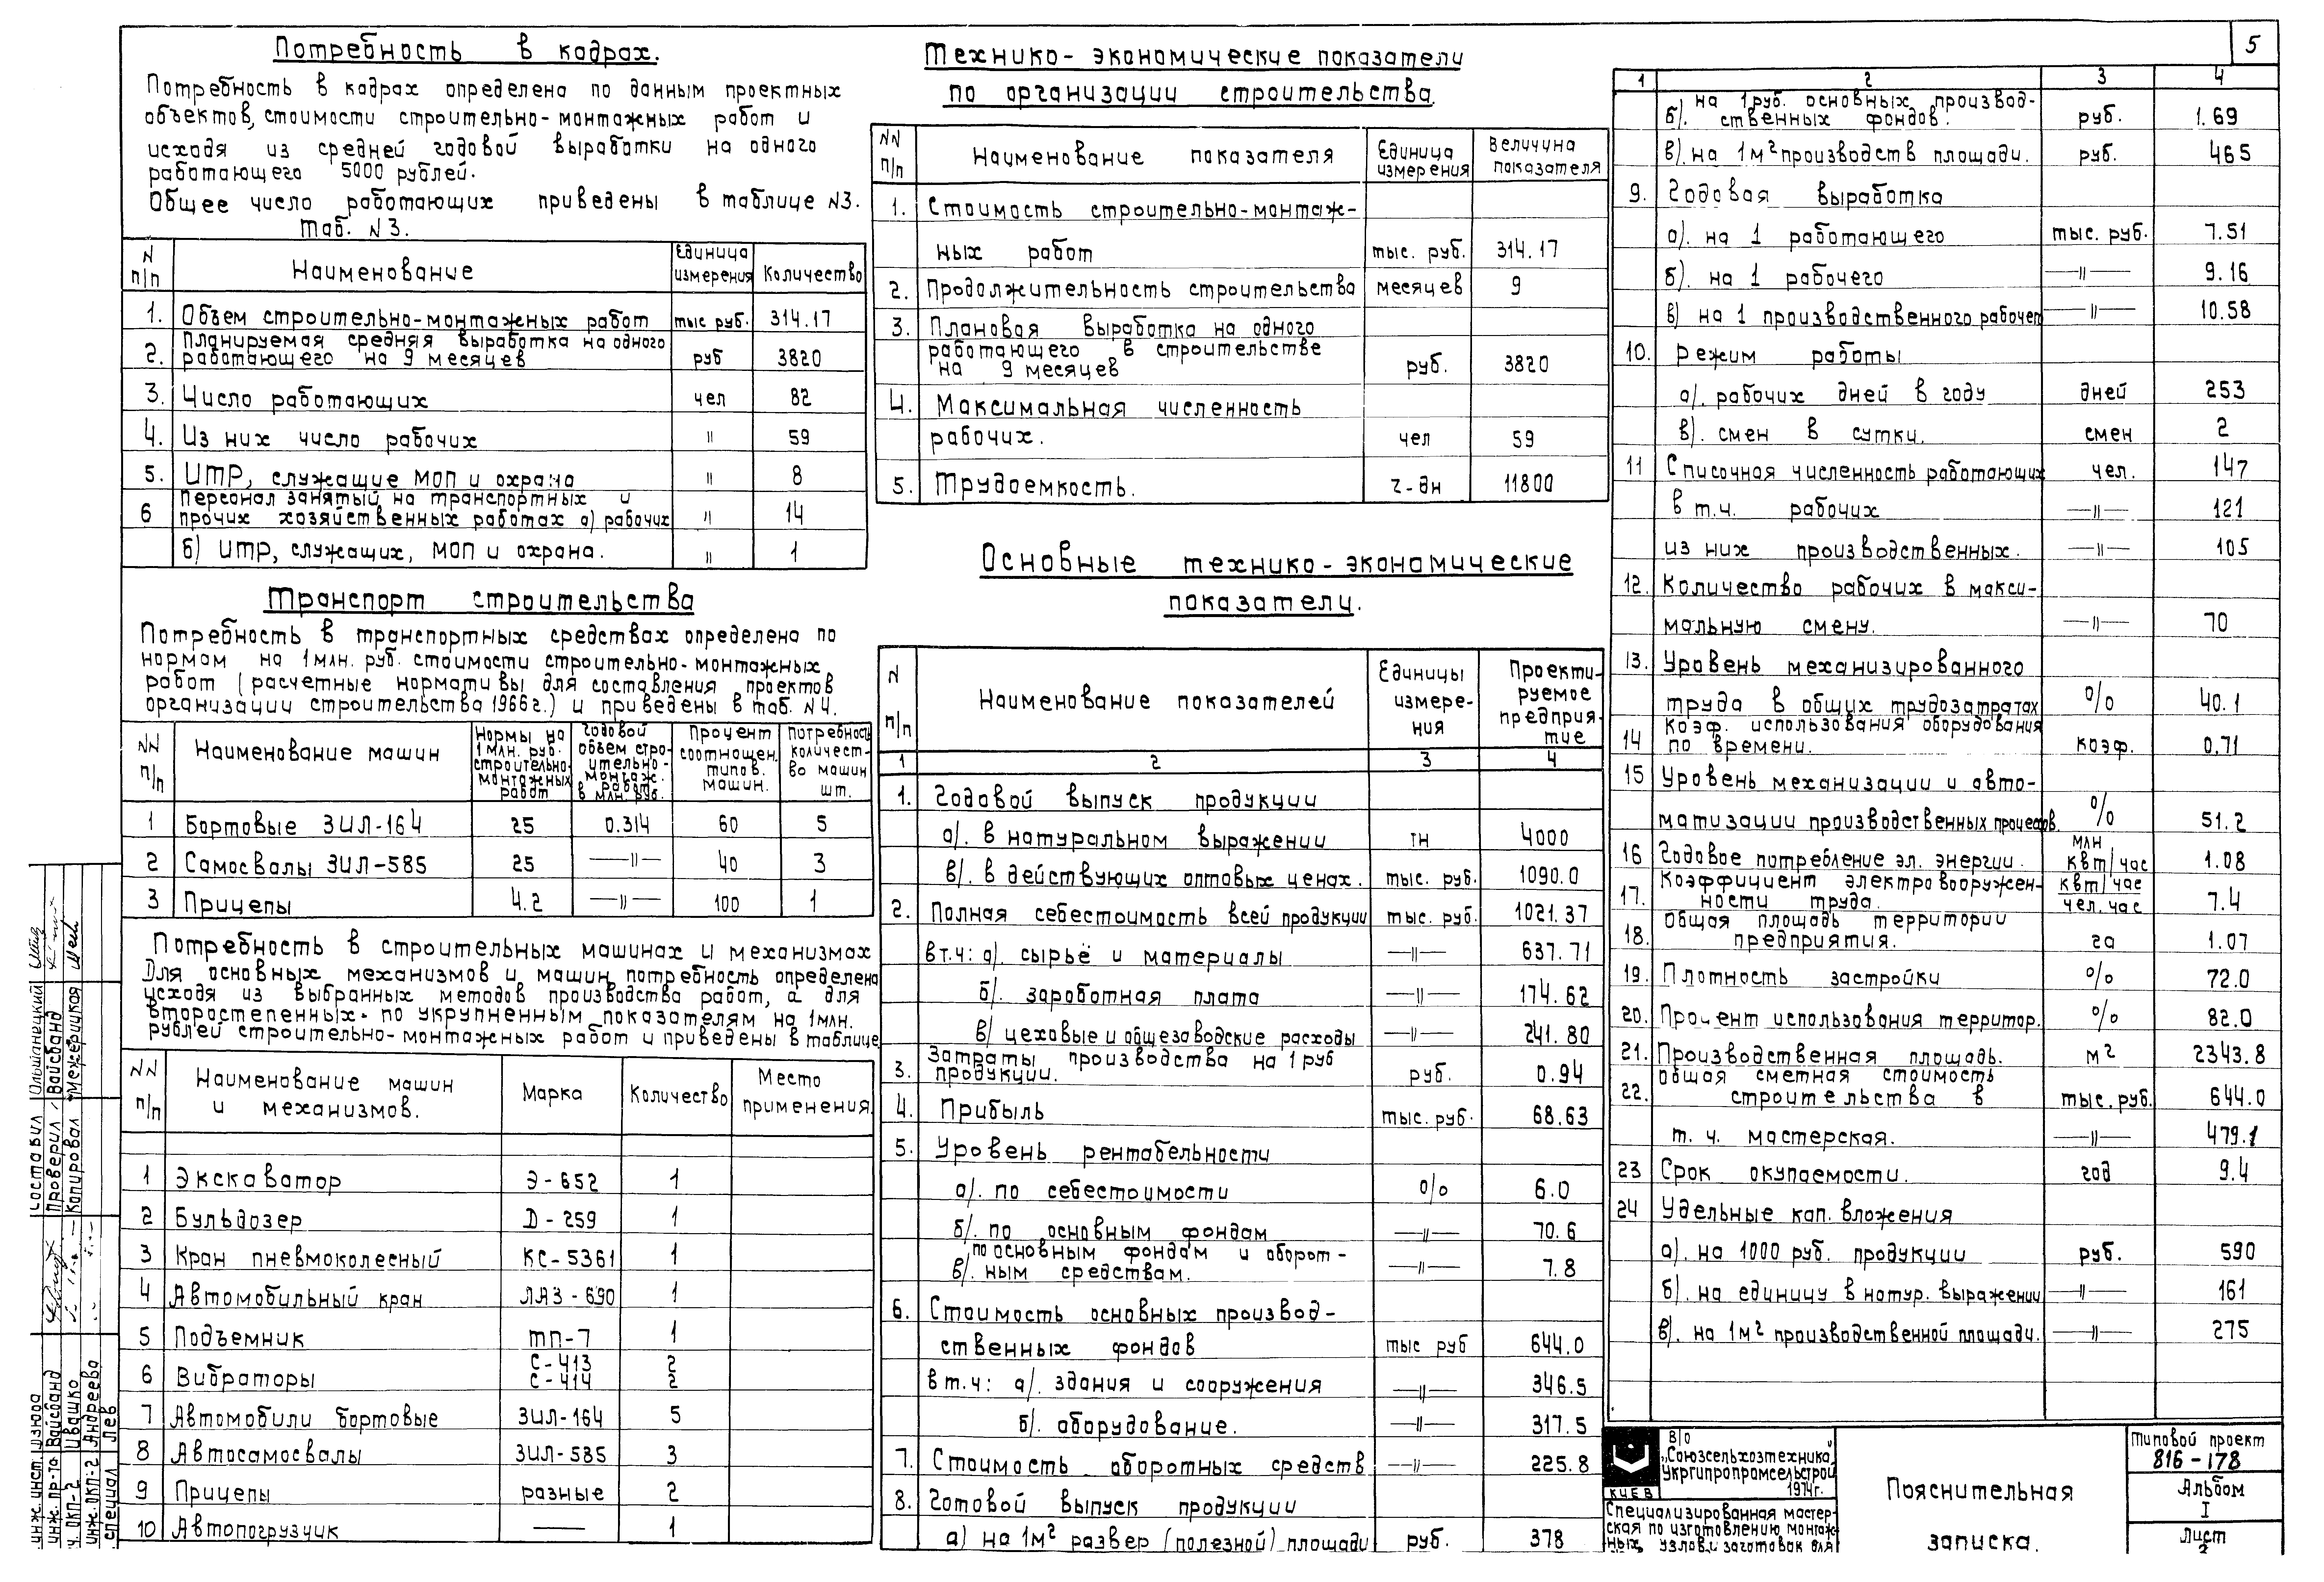 5
Потребность в кадрах.
Потребность в кадрах определена по данным проектных
объектов, стоимости строительно-монтажных работ и
исходя из средней годовой выработки на одного
работающего 5000 рублей.
Общее число работающих приведены в таблице N3.
Таб. N3.
N п/п Наименование Единица измерения Количество
1. Объем строительно-монтажных работ тыс руб. 314.17
2. Планируемая средняя выработка на одного
работающего на 9 месяцев руб 3820
3. Число работающих чел 82
4. Из них число рабочих " 59
5. ИТР, служащие МОП и охрана " 8
6 Персонал занятый на транспортных и
прочих хозяйственных работах а) рабочих " 14
б) ИТР, служащих, МОП и охрана. " 1
Транспорт строительства
Потребность в транспортных средствах определена по
нормам на 1млн. руб. стоимости строительно-монтажных
работ (расчетные нормативы для составления проектов
организации строительства 1966г.) и приведены в таб. N4.
NN п/п Наименование машин Нормы на 1млн. руб. строительно-монтажных работ Годовой объем строительно-монтаж. работ в млн. руб. Процент соотношен. типов. машин. Потребность количество машин шт.
1 Бортовые ЗИЛ-164 25 0.314 60 5
2 Самосвалы ЗИЛ-585 25 —"— 40 3
3 Прицепы 4.2 —"— 100 1
Потребность в строительных машинах и механизмах
Для основных механизмов и машин потребность определена
исходя из выбранных методов производства работ, а для
второстепенных - по укрупненным показателям на 1млн.
рублей строительно-монтажных работ и приведены в таблице
NN п/п Наименование машин и механизмов. Марка Количество Место применения.
1 Экскаватор Э-652 1
2 Бульдозер Д-259 1
3 Кран пневмоколесный КС-5361 1
4 Автомобильный кран ЛАЗ-690 1
5 Подъемник ТП-7 1
6 Вибраторы С-413 2
С-414 2
7 Автомобили бортовые ЗИЛ-164 5
8 Автосамосвалы ЗИЛ-585 3
9 Прицепы разные 2
10 Автопогрузчик — 1
Технико-экономические показатели
по организации строительства.
NN п/п Наименование показателя Единица измерения Величина показателя
1. Стоимость строительно-монтаж-
ных работ тыс. руб. 314.17
2. Продолжительность строительства месяцев 9
3. Плановая выработка на одного
работающего в строительстве
на 9 месяцев руб. 3820
4. Максимальная численность
рабочих. чел 59
5. Трудоемкость. ч-дн 11800
Основные технико-экономические
показатели.
N п/п Наименование показателей Единицы измерения Проектируемое предприятие
1 2 3 4
1. Годовой выпуск продукции
а). в натуральном выражении тн 4000
в). в действующих оптовых ценах. тыс. руб. 1090.0
2. Полная себестоимость всей продукции тыс. руб. 1021.37
в т.ч: а). сырьё и материалы —"— 637.71
б). заработная плата —"— 174.62
в) цеховые и общезаводские расходы —"— 241.80
3. Затраты производства на 1 руб
продукции. руб. 0.94
4. Прибыль тыс. руб. 68.63
5. Уровень рентабельности
а). по себестоимости % 6.0
б). по основным фондам —"— 70.6
в). по основным фондам и оборот-
ным средствам. —"— 7.8
6. Стоимость основных производ-
ственных фондов тыс руб 644.0
в т.ч: а). здания и сооружения —"— 346.5
б). оборудование. —"— 317.5
7. Стоимость оборотных средств —"— 225.8
8. Готовой выпуск продукции
а) на 1м² развер (полезной) площади руб. 378
1 2 3 4
б). на 1руб. основных производ-
ственных фондов. руб. 1.69
в). на 1м² производств площади. руб. 465
9. Годовая выработка
а). на 1 работающего тыс. руб. 7.51
б). на 1 рабочего —"— 9.16
в) на 1 производственного рабочег —"— 10.58
10. Режим работы
а). рабочих дней в году дней 253
в). смен в сутки. смен 2
11 Списочная численность работающих чел. 147
в т.ч. рабочих —"— 121
из них производственных. —"— 105
12. Количество рабочих в макси-
мальную смену. —"— 70
13. Уровень механизированного
труда в общих трудозатратах % 40.1
14 Коэф. использования оборудования
по времени. коэф. 0.71
15 Уровень механизации и авто-
матизации производственных процессов. % 51.2
16 Годовое потребление эл. энергии. млн квт/час 1.08
17. Коэффициент электровооружен-
ности труда. квт/час чел. час 7.4
18. Общая площадь территории
предприятия. га 1.07
19. Плотность застройки % 72.0
20. Процент использования территор. % 82.0
21. Производственная площадь. м² 2343.8
22. Общая сметная стоимость
строительства в тыс. руб. 644.0
т. ч. мастерская. —"— 479.1
23 Срок окупаемости. год 9.4
24 Удельные кап. вложения
а). на 1000 руб. продукции руб. 590
б). на единицу в натур. выражении —"— 161
в). на 1м² производственной площади. —"— 275
В/О
„Союзсельхозтехника"
Укргипропромсельстрой
1974г.
КИЕВ
Специализированная мастер-
ская по изготовлению монтаж-
ных узлов и заготовок для
Пояснительная
записка.
Типовой проект
816-178
Альбом
I
Лист
2
Составил Ольшанецкий
Проверил Вайсбанд
Копировал Межерицкая
инж. пр-та Вайсбанд
ОКП-2 Ивашко
инж. ОКП-2 Андреева
специал Лев